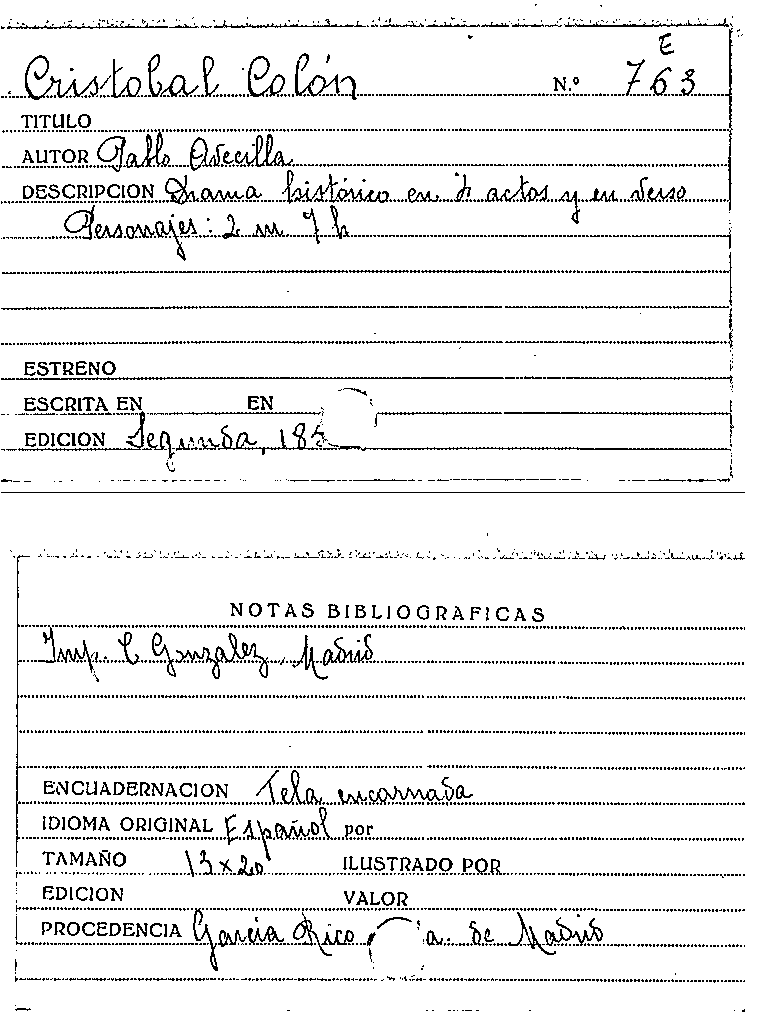 E
Cristobal Colón N.º 763
TITULO
AUTOR Pablo Avecilla
DESCRIPCION Drama histórico en actos y en verso
Personajes: 2 m 7 h
ESTRENO
ESCRITA EN EN
EDICION Segunda, 185
NOTAS BIBLIOGRAFICAS
Imp. C Gonzalez, Madrid
ENCUADERNACION Tela encarnada
IDIOMA ORIGINAL Español por
TAMAÑO 13 x 20 ILUSTRADO POR
EDICION VALOR
PROCEDENCIA Garcia Rico a. de Madrid